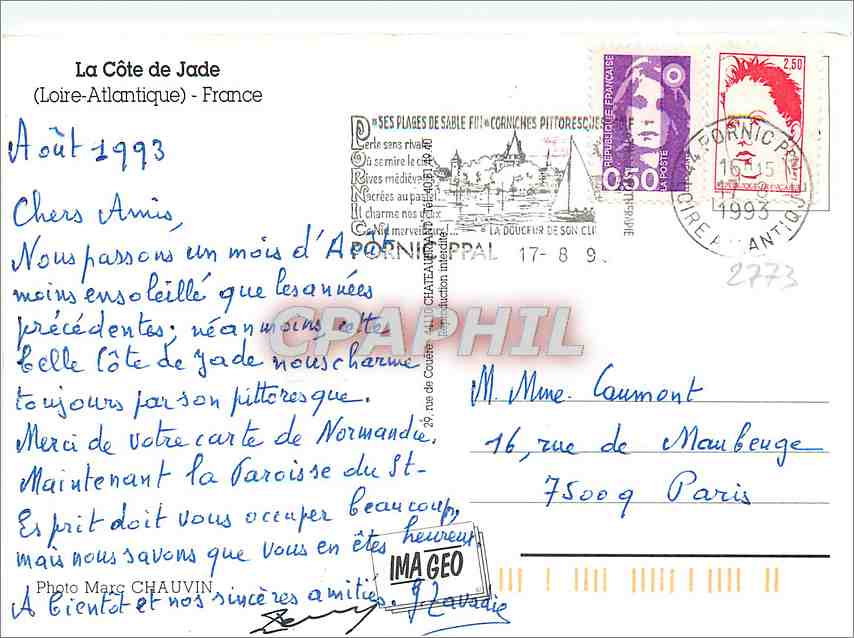 La Côte de Jade
(Loire-Atlantique) - France
Août 1993
Chers Amis,
Nous passons un mois d'Août
moins ensoleillé que les années
précédentes; néanmoins, cette
belle Côte de Jade nous charme
toujours par son pittoresque.
Merci de votre carte de Normandie.
Maintenant la Paroisse du St-
Esprit doit vous occuper beaucoup,
mais nous savons que vous en êtes heureux.
Photo Marc CHAUVIN
A bientôt et nos sincères amitiés.
IMAGEO
29, rue de Couëré 44110 CHATEAUBRIANT Tél. 40 81 40 40
Reproduction interdite
SES PLAGES DE SABLE FIN CORNICHES PITTORESQUES
PORNIC
Perle sens rivale
Où se mire le
rives médiévales
Sacrées au pastel
Il charme nos yeux
Nid merveilleux
LA DOUCEUR DE SON CLI
PORNIC PPAL 17- 8 9
REPUBLIQUE FRANÇAISE
LA POSTE
0,50
2,50
44 PORNIC P
16H15
17-8
1993
LOIRE ATLANTIQUE
2773
CPAPHIL
M. Mme. Caumont
16, rue de Maubeuge
75009 Paris